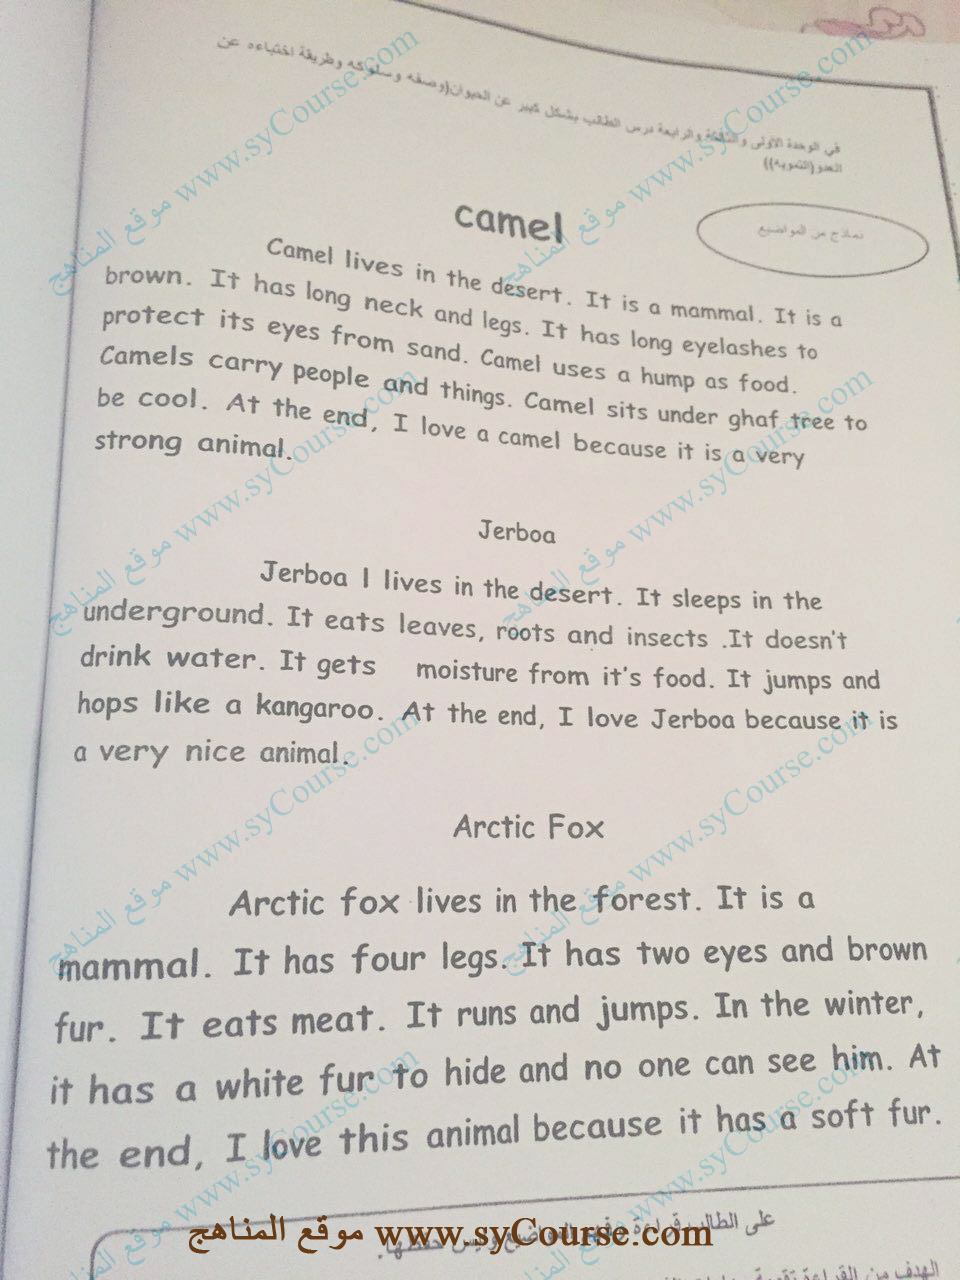 في الوحدة الأولى والثالثة والرابعة درس الطالب بشكل كبير عن الحيوان(وصفه وسلوكه وطريقة اختباءه عن
العدو(التمويه))
نماذج من المواضيع
camel
Camel lives in the desert. It is a mammal. It is a
brown. It has long neck and legs. It has long eyelashes to
protect its eyes from sand. Camel uses a hump as food.
Camels carry people and things. Camel sits under ghaf tree to
be cool. At the end, I love a camel because it is a very
strong animal.
Jerboa
Jerboa I lives in the desert. It sleeps in the
underground. It eats leaves, roots and insects .It doesn't
drink water. It gets moisture from it's food. It jumps and
hops like a kangaroo. At the end, I love Jerboa because it is
a very nice animal.
Arctic Fox
Arctic fox lives in the forest. It is a
mammal. It has four legs. It has two eyes and brown
fur. It eats meat. It runs and jumps. In the winter,
it has a white fur to hide and no one can see him. At
the end, I love this animal because it has a soft fur.
على الطالب قراءة المواضيع وليس حفظها.
موقع المناهج www.syCourse.com
الهدف من القراءة